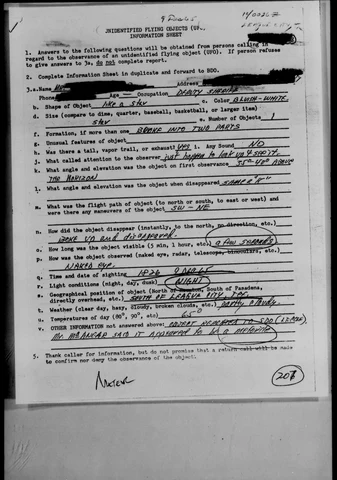 9 Dec 65
UNIDENTIFIED FLYING OBJECTS (UF
INFORMATION SHEET
1. Answers to the following questions will be obtained from persons calling in
regard to the observance of an unidentified flying object (UFO). If person refuses
to give answers to 3a, do not complete report.
2. Complete Information Sheet in duplicate and forward to
3.a. Age Occupation DEPUTY SHERIFF
b. Shape of Object LIKE A STAR c. Color BLUISH-WHITE
d. Size (compare to dime, quarter, baseball, basketball, or larger item)
STAR e. Number of Objects 1
f. Formation, if more than one BROKE INTO TWO PARTS
g. Unusual features of object
h. Was there a tail, vapor trail, or exhaust yes i. Any Sound NO
j. What called attention to the observer just happen to look up & spot it.
k. What angle and elevation was the object on first observance 35°-40° ABOVE
THE HORIZON
l. What angle and elevation was the object when disappeared SAME "K"
m. What was the flight path of object (to north, to south, to east or west) and
were there maneuvers of the object SW - NE
n. How did the object disappear (instantly, to the north, no direction, etc.)
BROKE UP AND disappeared.
o. How long was the object visible (5 min, 1 hour, etc.) a few seconds
p. How was the object observed (naked eye, radar, telescope, binoculars, etc.)
NAKED eye.
q. Time and date of sighting 1826 9 Dec 65
r. Light conditions (night, day, dusk) NIGHT
s. Geographical position of object (North of Houston, South of Pasadena,
directly overhead, etc.) SOUTH OF LEAGUE CITY TEX.
t. Weather (clear day, hazy, cloudy, broken clouds, etc.) partly cloudy
u. Temperatures of day (80°, 90°, etc) 65°
v. OTHER INFORMATION not answered above:
said it appeared to be a meteorite
5. Thank caller for information, but do not promise that a return call will be made
to confirm nor deny the observance of the object.
207